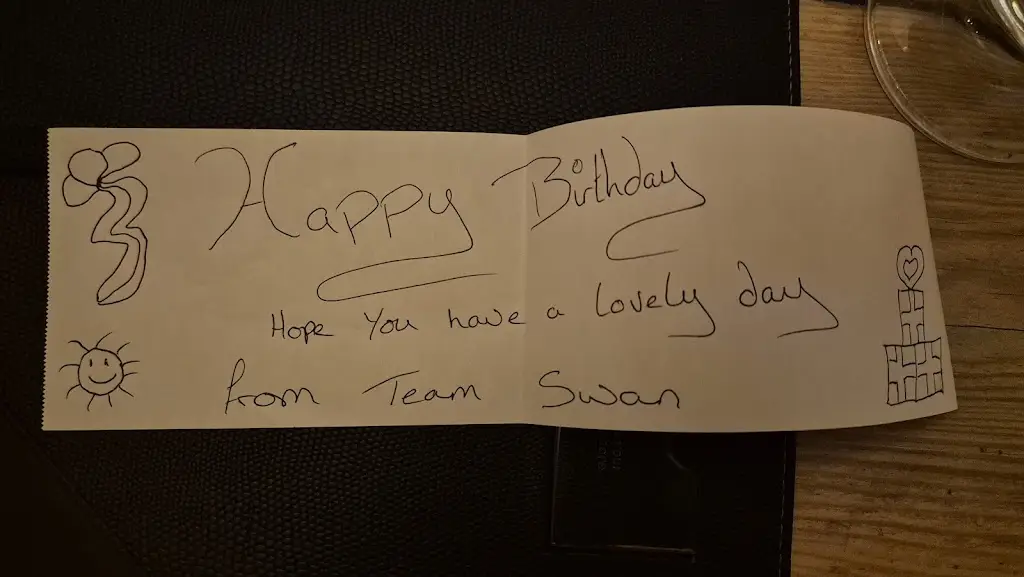 Happy Birthday
Hope you have a lovely day
from Team Swan